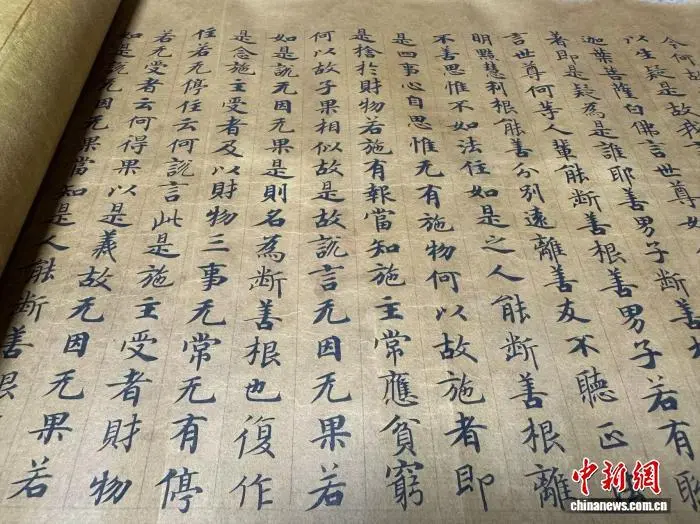 何故
以生疑是故我
迦葉菩薩白佛言世尊如
著即是疑為是誰耶善男子
言世尊何等人輩能斷善根善男子若有聰
明黠慧利根能善分別遠離善友不聽正
不善思惟不如法住如是之人能斷善根離
是四事心自思惟无有施物何以故施者即
是捨於財物若施有報當知施主常應貧窮
何以故子果相似故是故說言无因无果若
如是說无因无果是則名為斷善根也復作
是念施主受者及以財物三事无常无有停
住若无停住云何說言此是施主受者財物
若无受者云何得果以是義故无因无果若
如是說无因无果當知是人能斷善根
中新网
chinanews.com